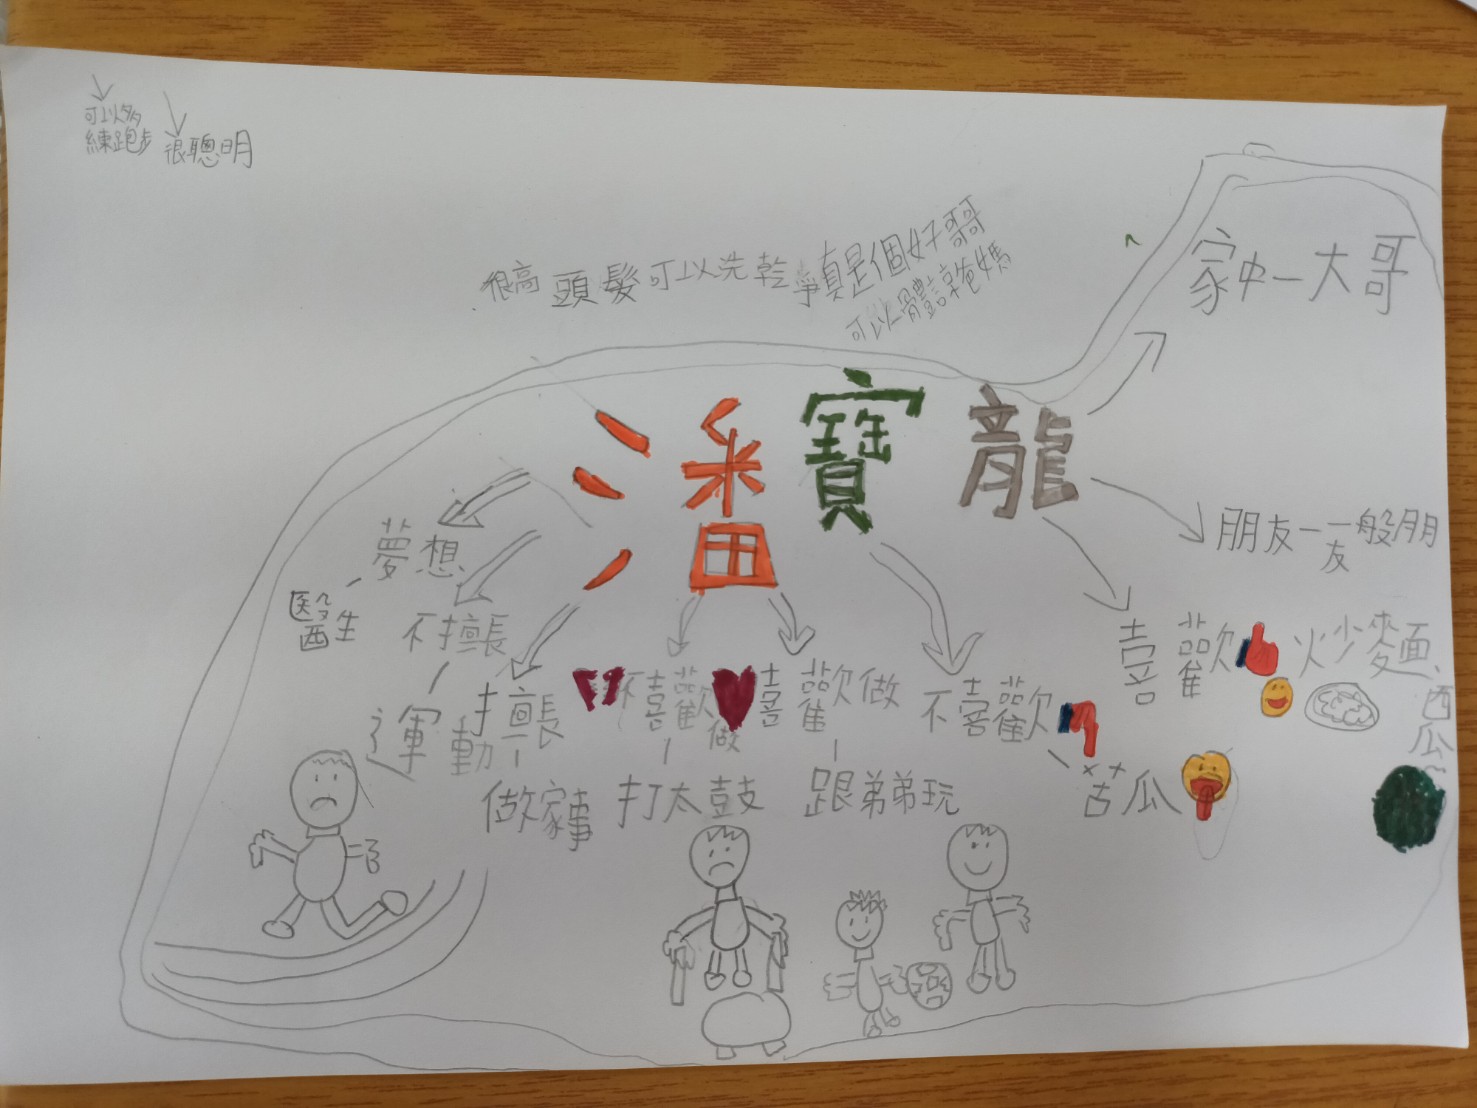 可以多
練跑步
很聰明
很高
頭髮可以洗乾
淨真是個好哥哥
可以體諒爸媽
家中一大哥
潘寶龍
夢想
醫生
不擅長
運動
擅長
做家事
不喜歡
做
打太鼓
喜歡做
跟弟弟玩
不喜歡
苦瓜
喜歡
炒麵、
西瓜
朋友一一般朋
友